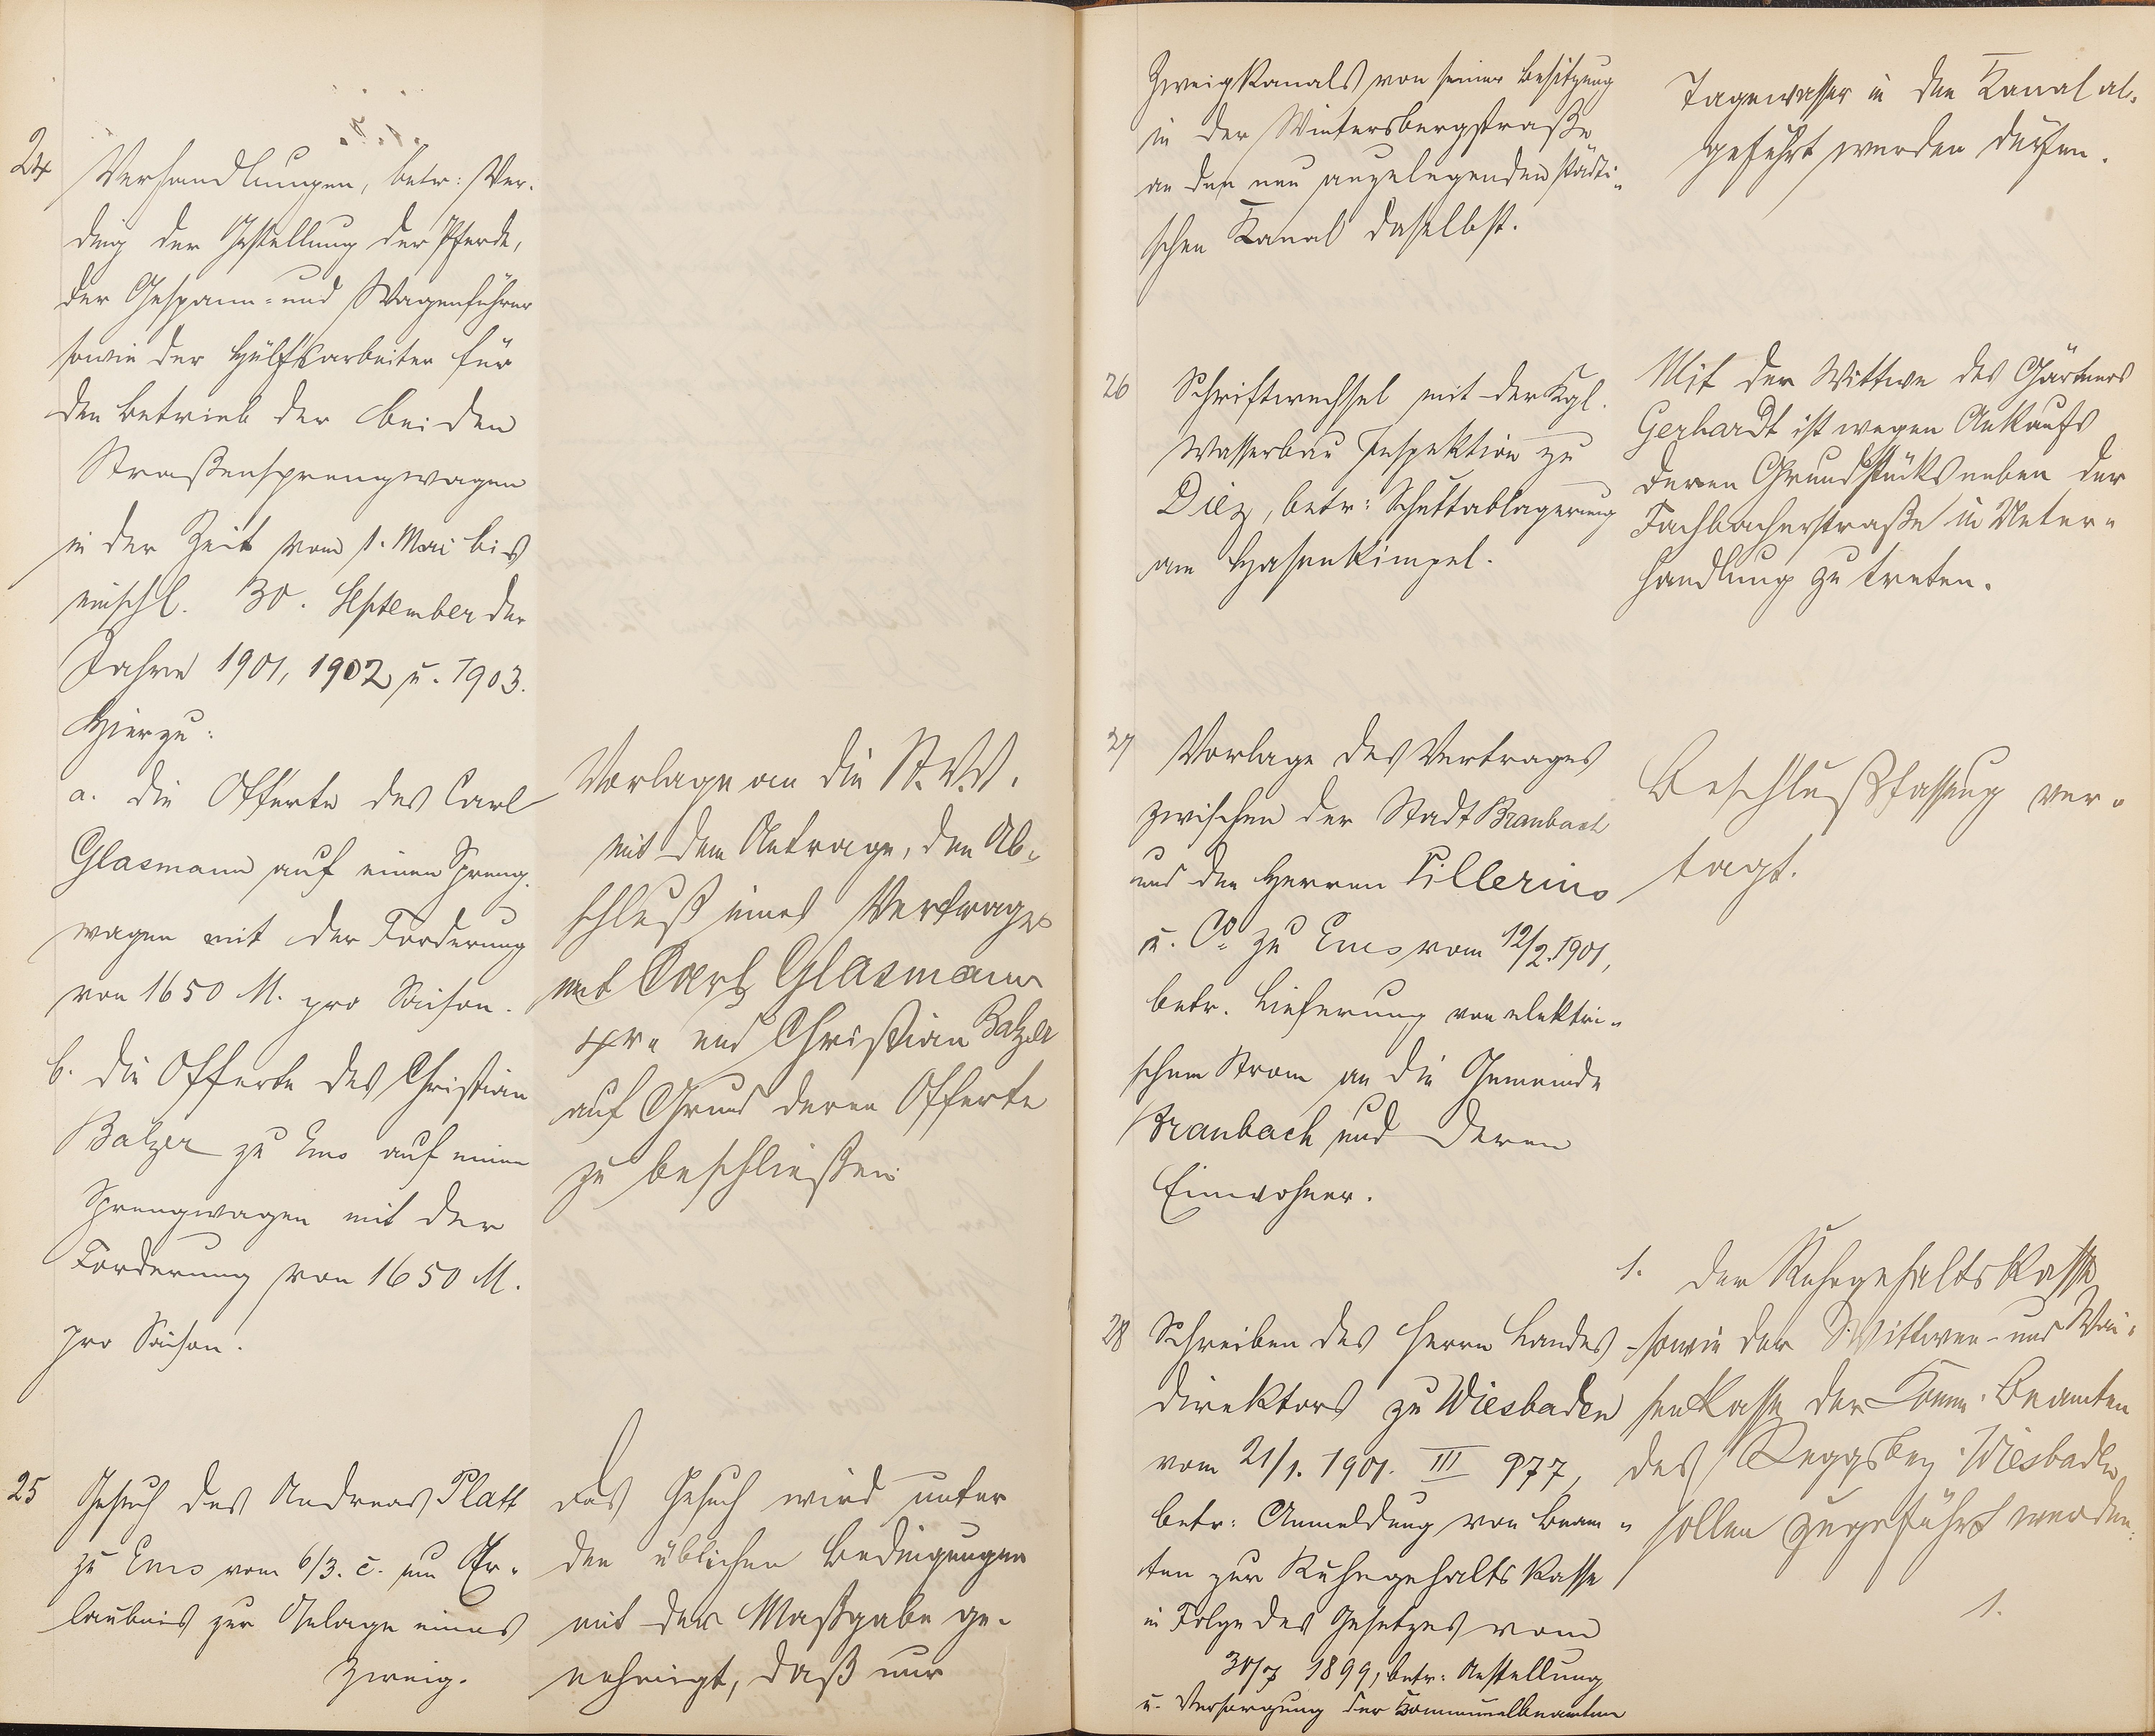 24
Verhandlungen, betr: Ver-
ding der Gestellung der Pferde,
der Gespann- und Wagenführer
sowie der Hülfsarbeiter für
den Betrieb der beiden
Straßensprengwagen
in der Zeit vom 1. Mai bis
einschl. 30. September der
Jahre 1901, 1902 u. 1903.
Hierzu:
a. die Offerte des Carl
Glasmann auf einen Spreng-
wagen mit der Forderung
von 1650 M. pro Saison.
b. die Offerte des Christian
Balzer zu Ems auf einen
Sprengwagen mit der
Forderung von 1650 M.
pro Saison.
Vorlage an die St. V. V.
mit dem Antrage, den Ab-
schluß eines Vertrages
mit Carl Glasmann
und Christian Balzer
auf Grund deren Offerte
zu beschließen
25
Gesuch des Andreas Platt
zu Ems vom 6/3. c. um Er-
laubnis zur Anlage eines
Zweig-
Das Gesuch wird unter
den üblichen Bedingungen
mit der Maßgabe ge-
nehmigt, daß nur
Zweigkanals von seiner Besitzung
in der Wintersbergstraße
an den neu anzulegenden städti-
schen Kanal daselbst.
Tagewasser in den Kanal ab-
geführt werden dürfen.
26
Schriftwechsel mit der Kgl.
Wasserbau Inspektion zu
Diez, betr: Schuttablagerung
am Hasenkümpel.
Mit der Wittwe des Gärtners
Gerhardt ist wegen Ankaufs
deren Grundstücks neben der
Fachbacherstraße in Unter-
handlung zu treten.
27
Vorlage des Vertrages
zwischen der Stadt Braubach
und den Herren Pillerins
u. Co zu Ems vom 12/2. 1901,
betr. Lieferung von elektri-
schem Strom an die Gemeinde
Braubach und deren
Einwohner.
Beschlußfassung ver-
tagt.
28
Schreiben des Herrn Landes-
direktors zu Wiesbaden
vom 21/1. 1901. III 977,
betr: Anmeldung von Beam-
ten zur Ruhegehaltskasse
in Folge des Gesetzes vom
30/7 1899, betr: Anstellung
u. Versorgung der Kommunalbeamten
1. Der Ruhegehaltskasse
sowie der Wittwen- und Wai-
senkasse der Komm. Beamten
des Reggsbez. Wiesbaden
sollen zugeführt werden:
1.